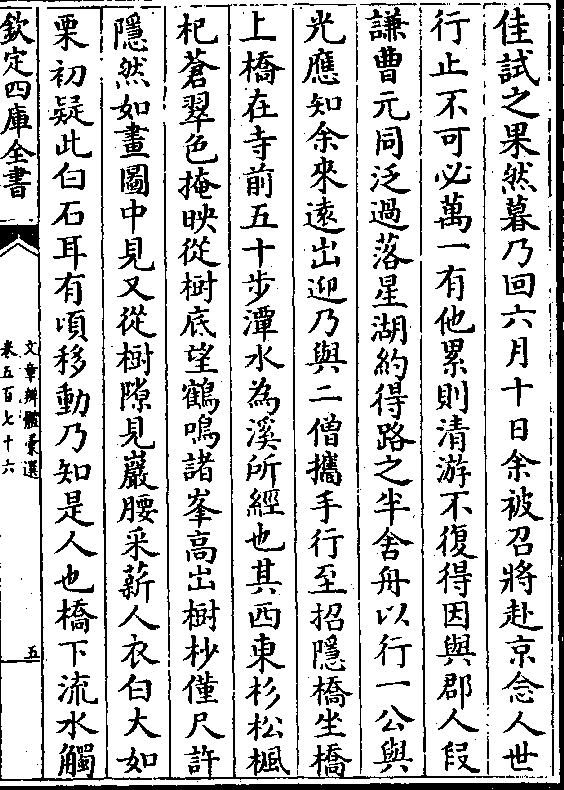 佳試之果然暮乃回六月十日余被召將赴京念人世
行止不可必萬一有他累則清游不復得因與郡人段
謙曹元同泛過落星湖約得路之半舍舟以行一公與
光應知余來遠出迎乃與二僧攜手行至招隱橋坐橋
上橋在寺前五十步潭水為溪所經也其西東杉松楓
杞蒼翠色掩映從樹底望鶴鳴諸峯高出樹杪僅尺許
隱然如畫圖中見又從樹隙見巖腰采薪人衣白大如
粟初疑此白石耳有頃移動乃知是人也橋下流水觸
欽定四庫全書
文章辨體彙選
卷五百七十六
五